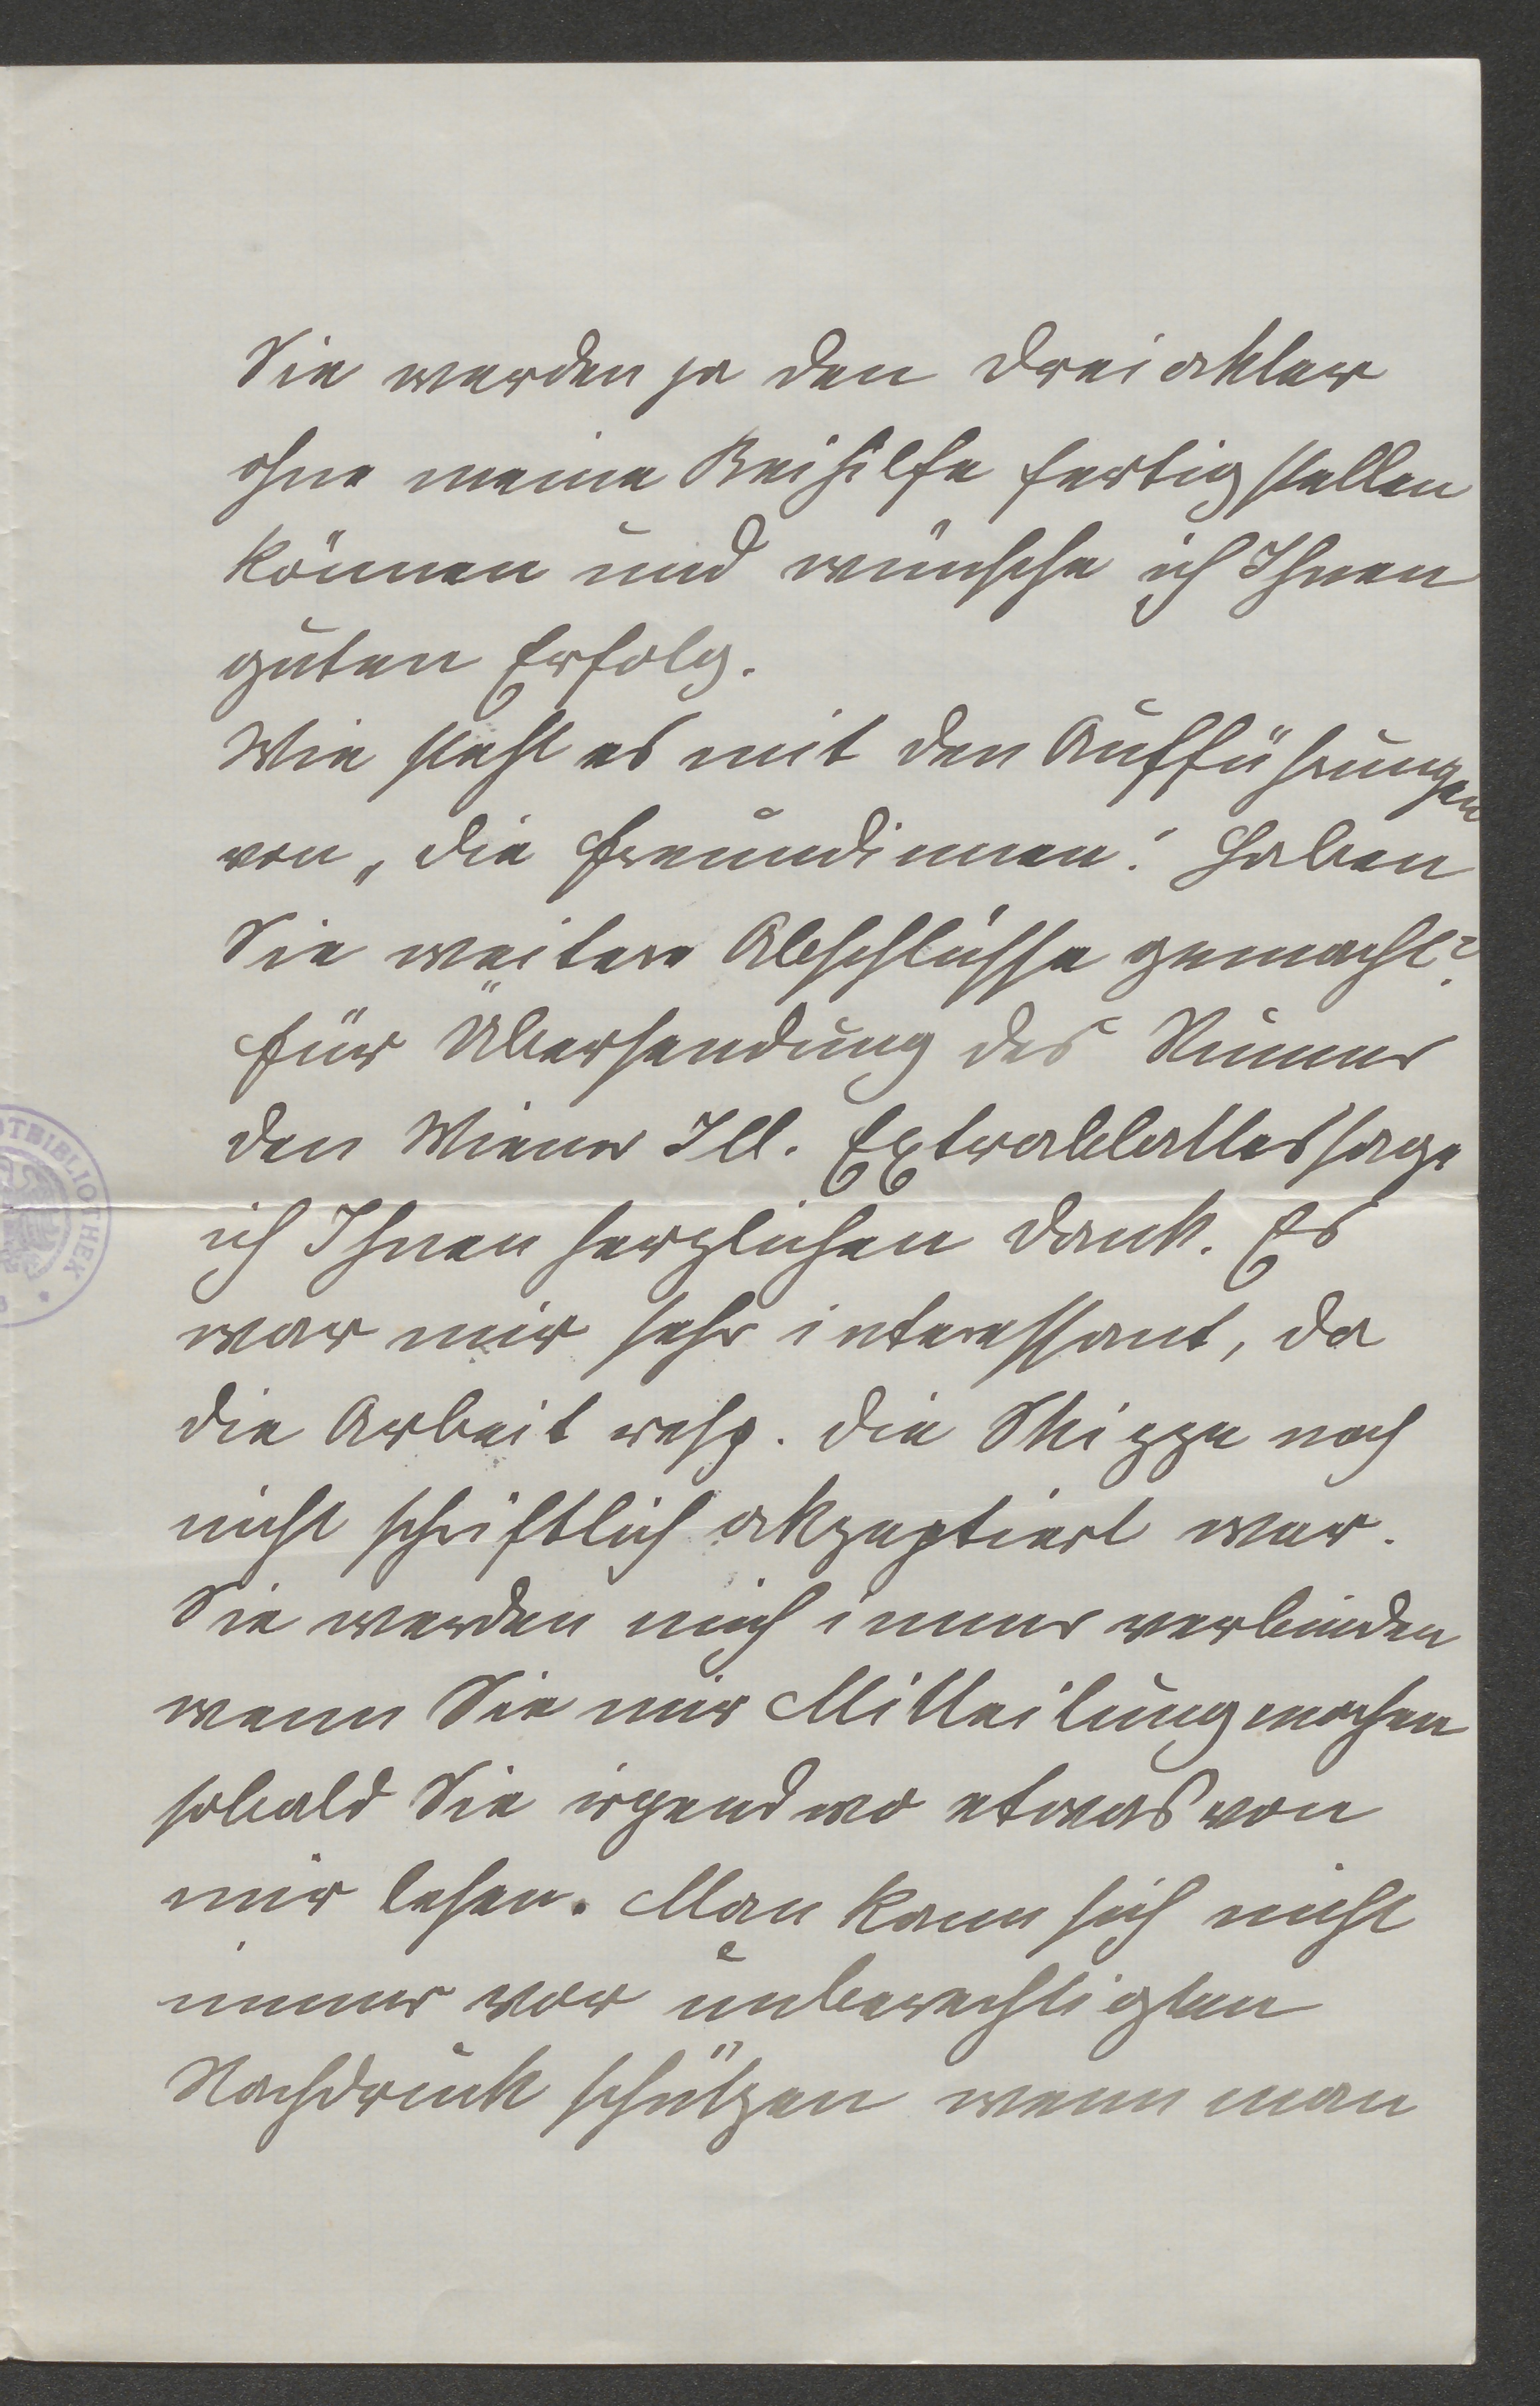 Sie werden ja den Dreiakter
ohne meine Beihilfe fertig stellen
können und wünsche ich Ihnen
guten Erfolg.
Wie steht es mit den Aufführungen
von „die Freundinnen“. Haben
Sie weitere Abschlüsse gemacht?
Für Übersendung des
den Wiener Ill. Extrablattes sage
ich Ihnen herzlichen Dank. Es
war mir sehr interessant, da
die Arbeit resp. die Skizze noch
nicht schriftlich akzeptiert war.
Sie werden mich immer verbinden
wenn Sie mir Mitteilung machen
sobald Sie irgend wo etwas von
mir lesen. Man kann sich nicht
immer vor unberechtigten
Nachdruck schützen wenn man
TBIBLIOTHEK